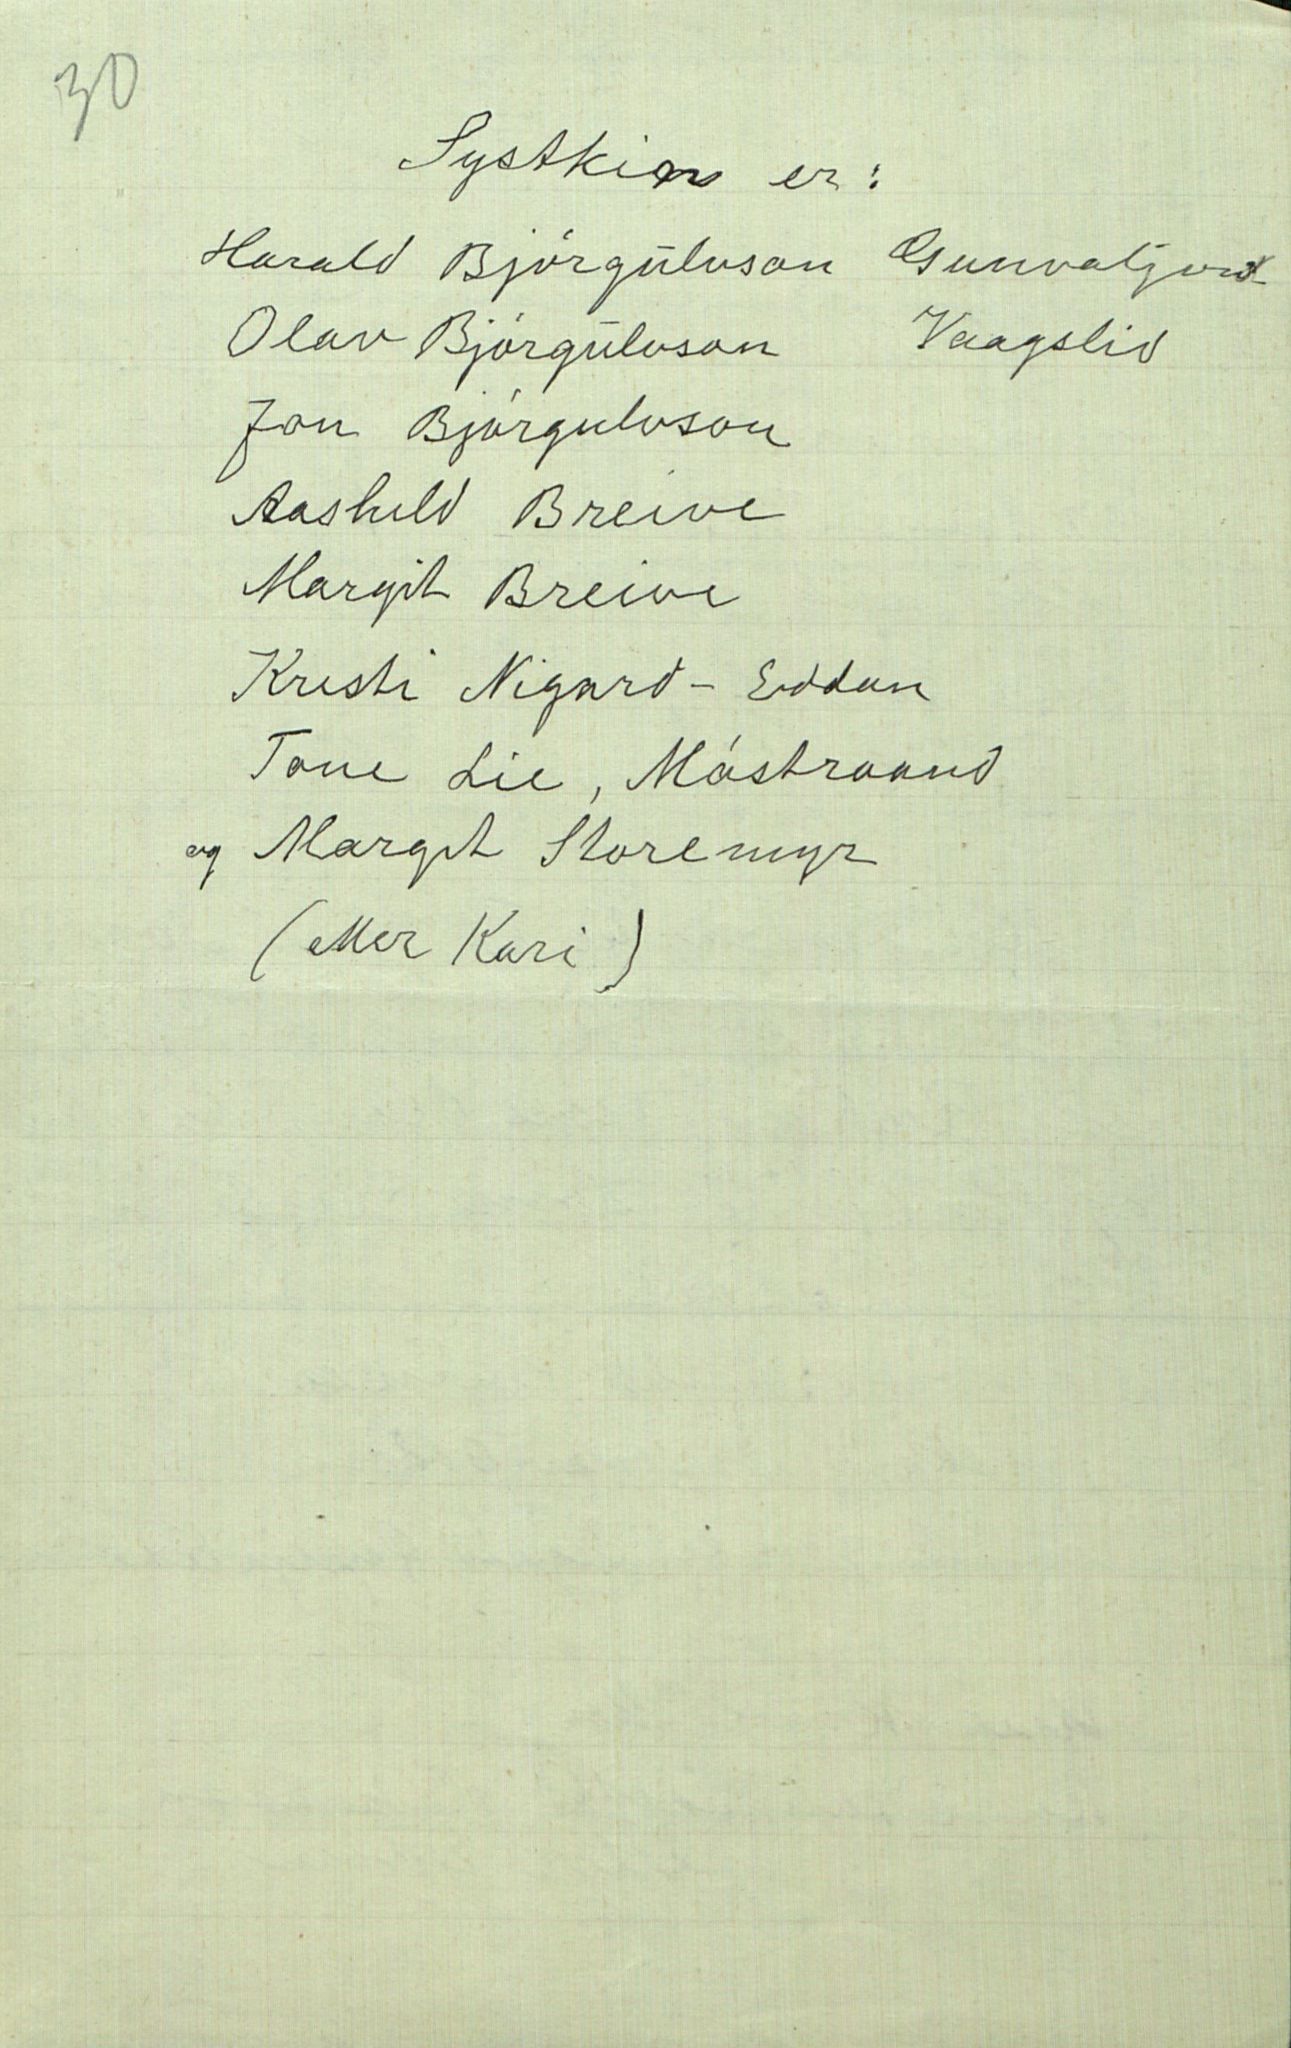 30
Systkin er:
Harald Bjórgulvson Gunvaljord
Olav Bjórgulvson Vaagslid
Jon Bjórgulvson
Aashild Breive
Margit Breive
Kristi Nigard - Eddan
Tone Lie, Móstraand
og Margit Storemyr
(eller Kari)